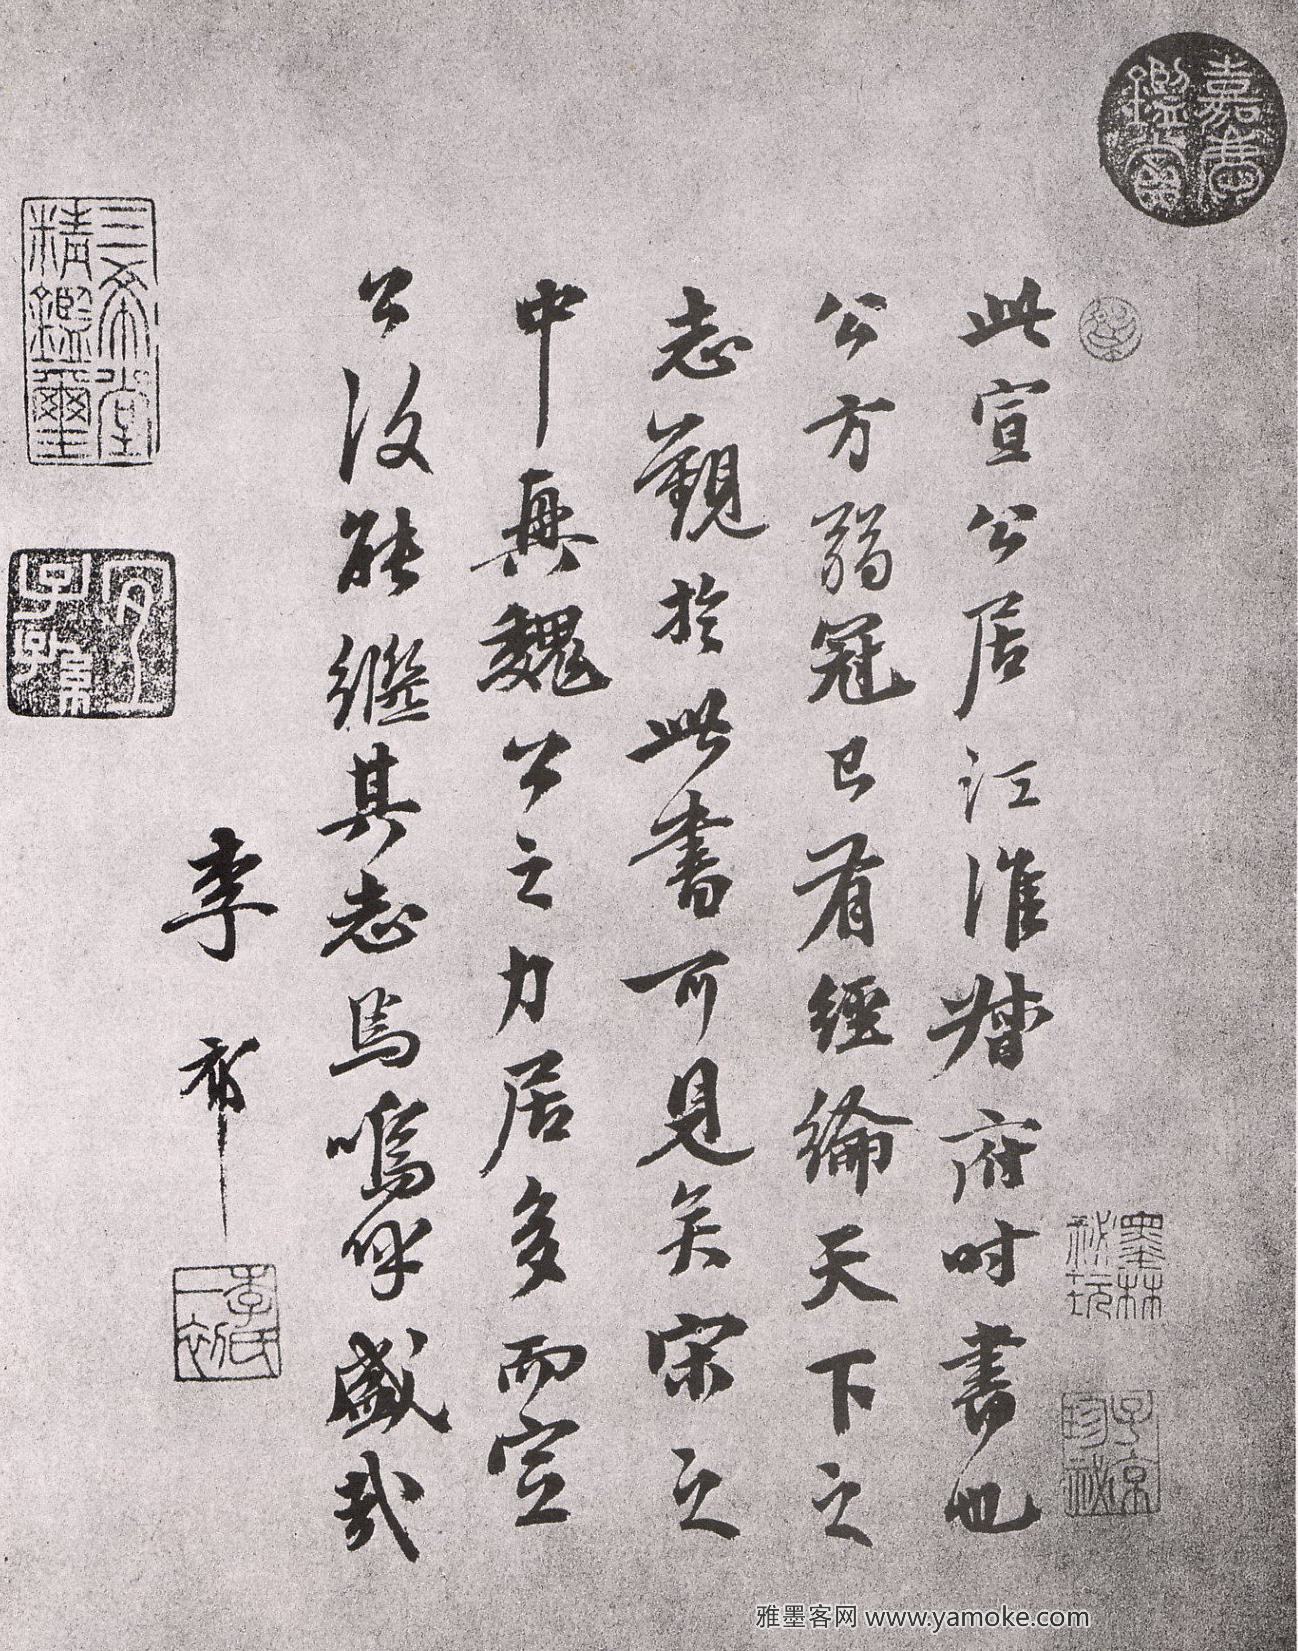 嘉慶鑑賞
此宣公居江淮督府時書也
公方弱冠已有經綸天下之
志觀於此書可見矣宋之
中興魏公之力居多而宣
公復能繼其志焉嗚呼盛哉
李祁
李氏一初
三希堂精鑑璽
宜子孫
墨林秘玩
子京珍秘
雅墨客网 www.yamoke.com